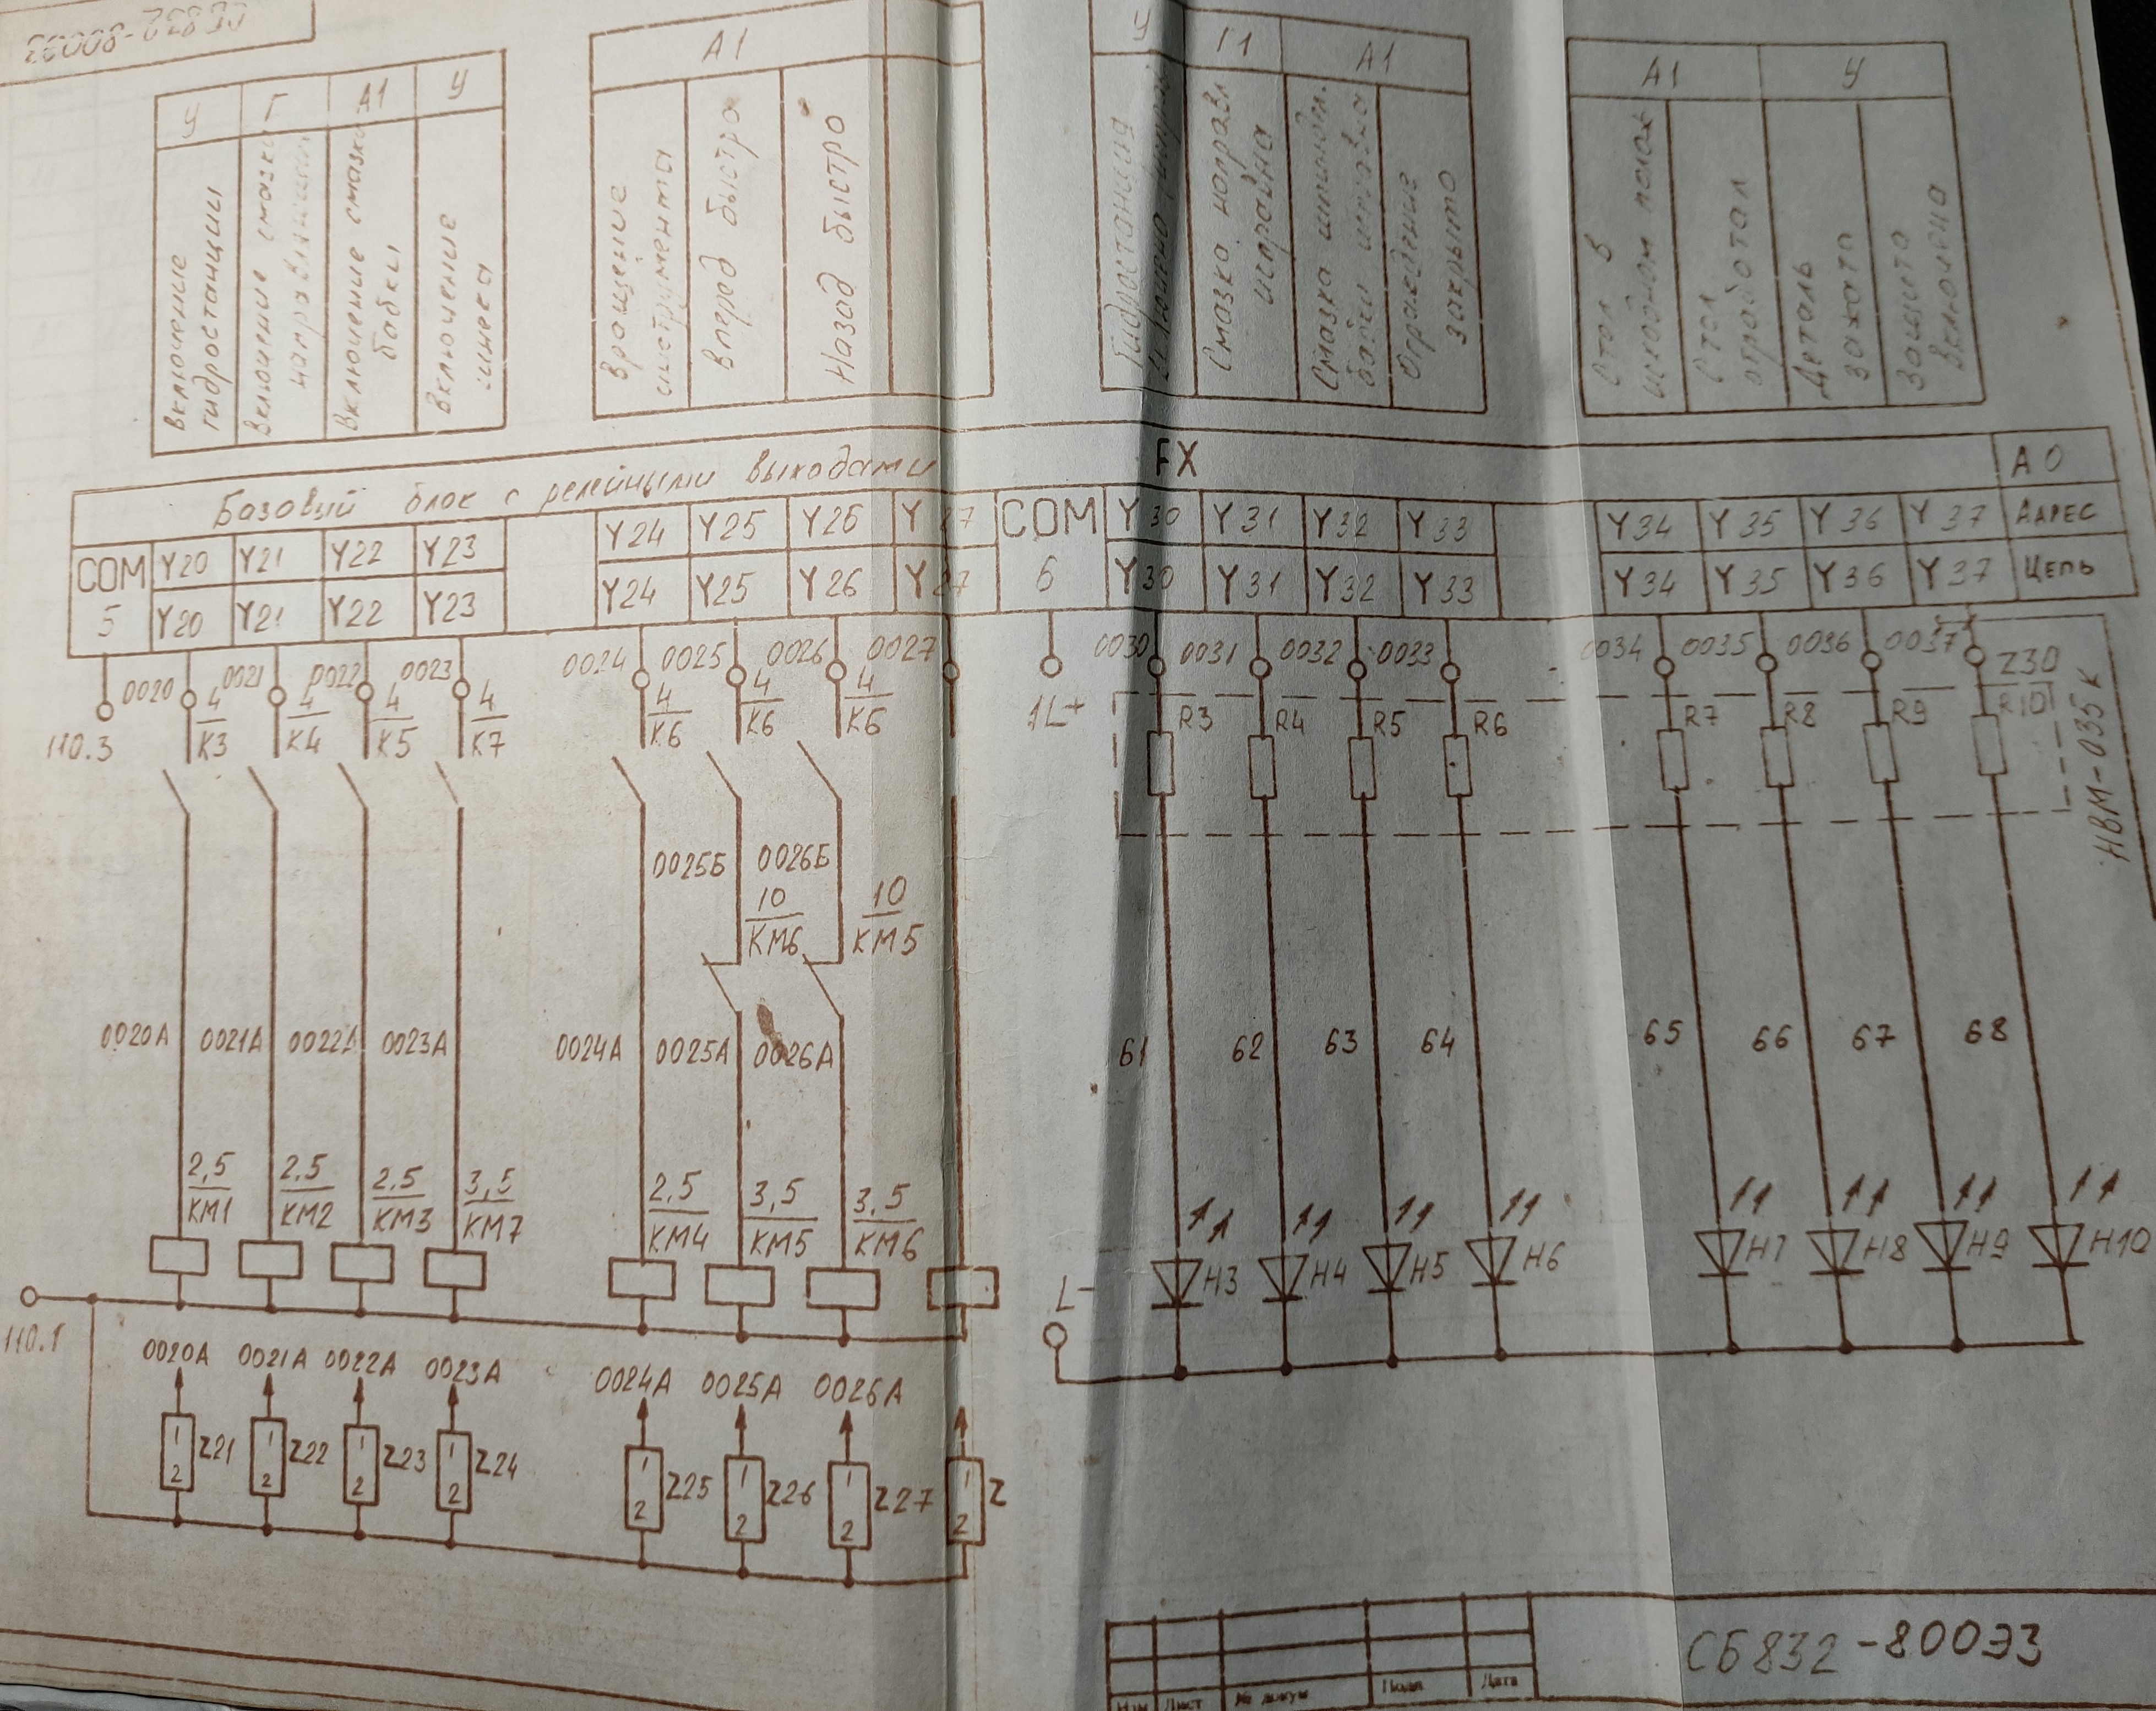 СБ832-800Э3
У
Г
А1
У
Включение гидростанции
Включение смазки направляющих
Включение смазки бабки
Включение шнека
А1
Вращение инструмента
Вперед быстро
Назад быстро
У
Г1
А1
Гидростанция
Смазка направл исправна
Смазка шпиндл. бабки
Ограждение закрыто
А1
У
Стол в исходном полож
Стол отработал
Деталь зажата
Защита включена
Базовый блок с релейными выходами FX А0
COM 5
Y20 Y21 Y22 Y23 Y24 Y25 Y26 Y27 COM 6 Y30 Y31 Y32 Y33 Y34 Y35 Y36 Y37 Адрес
Y20 Y21 Y22 Y23 Y24 Y25 Y26 Y27 Y30 Y31 Y32 Y33 Y34 Y35 Y36 Y37 Цепь
0020 0021 0022 0023 0024 0025 0026 0027 0030 0031 0032 0033 0034 0035 0036 0037
110.3
4 К3
4 К4
4 К5
4 К7
4 К6
4 К6
4 К6
1L+
R3 R4 R5 R6 R7 R8 R9 R10
Z30
НВМ-035к
0025Б 0026Б
10 КМ6
10 КМ5
0020А 0021А 0022А 0023А 0024А 0025А 0026А
61 62 63 64 65 66 67 68
2,5 КМ1
2.5 КМ2
2.5 КМ3
3,5 КМ7
2,5 КМ4
3,5 КМ5
3,5 КМ6
H3 H4 H5 H6 H7 H8 H9 H10
L-
110.1
0020А 0021А 0022А 0023А 0024А 0025А 0026А
1 2 Z21
1 2 Z22
1 2 Z23
1 2 Z24
1 2 Z25
1 2 Z26
1 2 Z27
1 2 Z
Изм Лист № докум Подп Дата
СБ832-800Э3